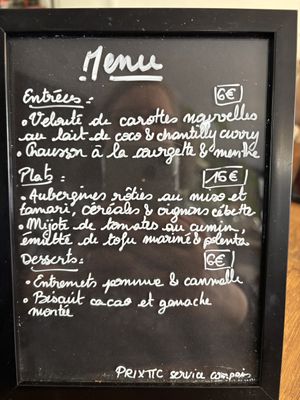 Menu
Entrées : 6€
• Velouté de carottes nouvelles
au lait de coco & chantilly curry
• Chausson à la courgette & menthe
Plats : 16€
• Aubergines rôties au miso et
tamari, céréales & oignons cébette
• Mijoté de tomates au cumin,
émietté de tofu mariné & polenta
Desserts : 6€
• Entremets pomme & cannelle
• Biscuit cacao et ganache
montée
PRIX TTC service compris